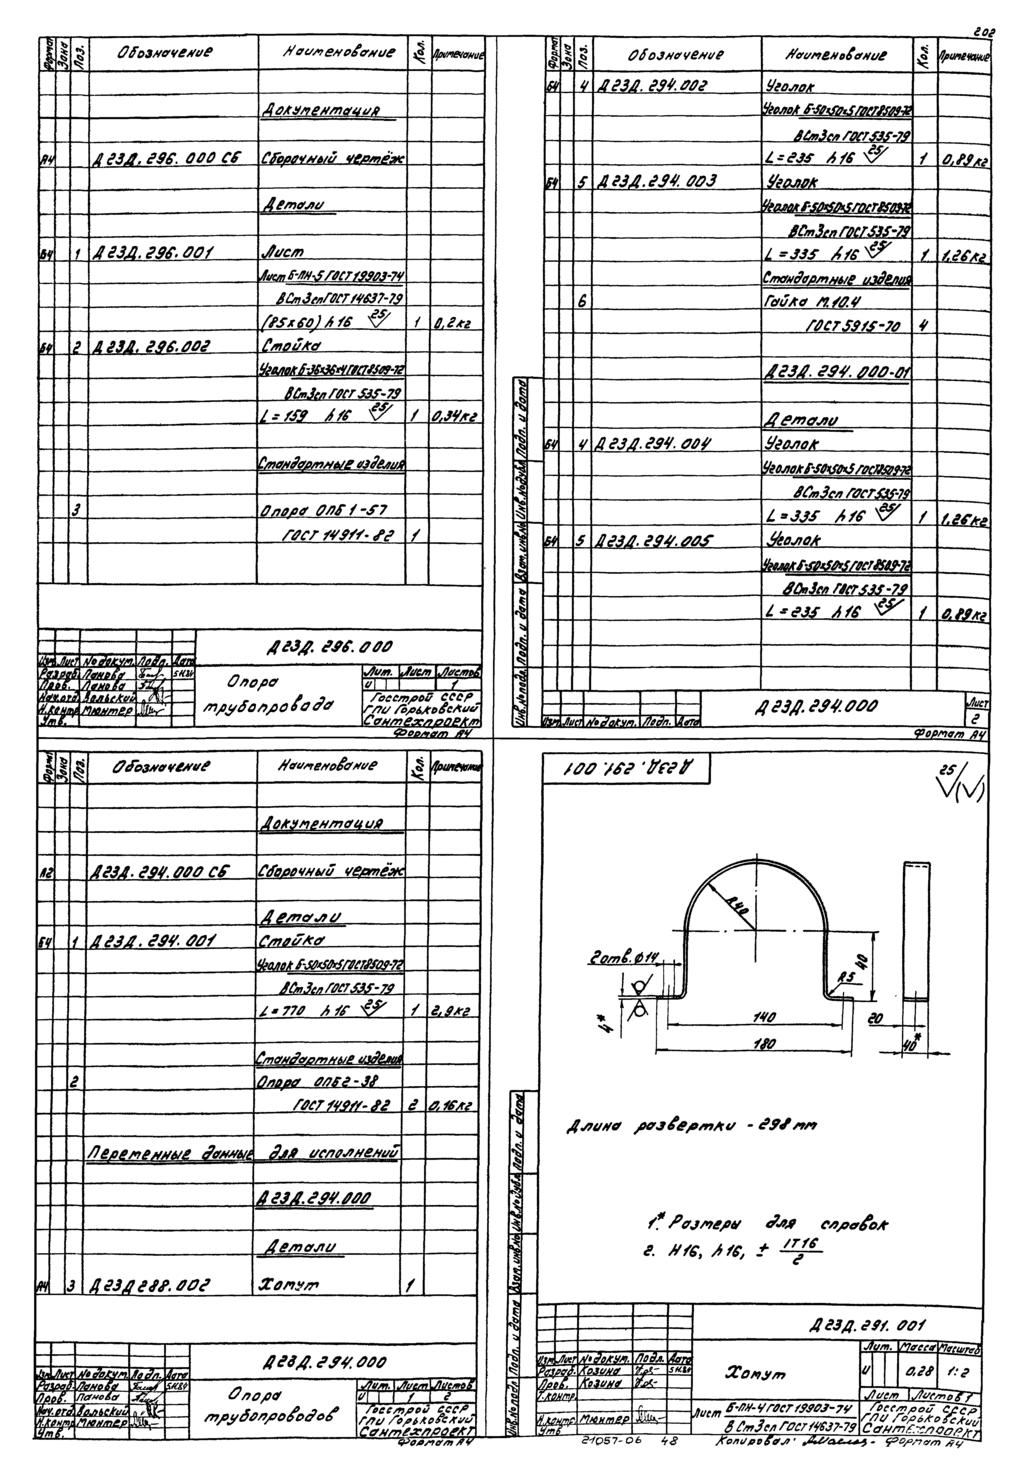 202
Формат Зона Поз. Обозначение Наименование Кол. Примечание
Документация
А4 Д23Д.296.000 СБ Сборочный чертёж
Детали
Б4 1 Д23Д.296.001 Лист
Лист Б-ПН-5 ГОСТ 19903-74
ВСт3сп ГОСТ 14637-79
(85х60) h16 25 1 0,2кг
Б4 2 Д23Д.296.002 Стойка
Уголок Б-36х36х4 ГОСТ 8509-72
ВСт3сп ГОСТ 535-79
L=159 h16 25 1 0,34кг
Стандартные изделия
3 Опора ОПБ1-57
ГОСТ 14911-82 1
Д23Д.296.000
Изм. Лист № докум. Подп. Дата
Разраб. Панова
Пров. Панова
Нач.отд. Вольский
Н.контр. Мюнтер
Утв.
Опора
трубопровода
Лит. Лист Листов
И 1
Госстрой СССР
ГПИ Горьковский
Сантехпроект
Формат А4
Формат Зона Поз. Обозначение Наименование Кол. Примечание
Б4 4 Д23Д.294.002 Уголок
Уголок Б-50х50х5 ГОСТ 8509-72
ВСт3сп ГОСТ 535-79
L=235 h16 25 1 0,89кг
Б4 5 Д23Д.294.003 Уголок
Уголок Б-50х50х5 ГОСТ 8509-72
ВСт3сп ГОСТ 535-79
L=335 h16 25 1 1,26кг
Стандартные изделия
6 Гайка М.10.4
ГОСТ 5915-70 4
Д23Д.294.000-01
Детали
Б4 4 Д23Д.294.004 Уголок
Уголок Б-50х50х5 ГОСТ 8509-72
ВСт3сп ГОСТ 535-79
L=335 h16 25 1 1,26кг
Б4 5 Д23Д.294.005 Уголок
Уголок Б-50х50х5 ГОСТ 8509-72
ВСт3сп ГОСТ 535-79
L=235 h16 25 1 0,89кг
Инв.№подл. Подп. и дата Взам.инв.№ Инв.№дубл. Подп. и дата
Изм. Лист № докум. Подп. Дата
Д23Д.294.000
Лист
2
Формат А4
Формат Зона Поз. Обозначение Наименование Кол. Примечание
Документация
А2 Д23Д.294.000 СБ Сборочный чертёж
Детали
Б4 1 Д23Д.294.001 Стойка
Уголок Б-50х50х5 ГОСТ 8509-72
ВСт3сп ГОСТ 535-79
L=770 h16 25 1 2,9кг
Стандартные изделия
2 Опора ОПБ2-38
ГОСТ 14911-82 2 0,16кг
Переменные данные для исполнений
Д23Д.294.000
Детали
А4 3 Д23Д288.002 Хомут 1
Д23Д.294.000
Изм. Лист № докум. Подп. Дата
Разраб. Панова
Пров. Панова
Нач.отд. Вольский
Н.контр. Мюнтер
Утв.
Опора
трубопроводов
Лит. Лист Листов
И 2
Госстрой СССР
ГПИ Горьковский
Сантехпроект
Формат А4
Д23Д.291.001
25
R40
2отв.ϕ14
R5
40
4*
140
180
20
40*
Длина развертки - 298 мм
1.* Размеры для справок
2. Н16, h16, ± IT16/2
Инв.№подл. Подп. и дата Взам.инв.№ Инв.№дубл. Подп. и дата
Д23Д.291.001
Изм. Лист № докум. Подп. Дата
Разраб. Козина
Пров. Козина
Т.контр.
Н.контр. Мюнтер
Утв.
Хомут
Лит. Масса Масштаб
И 0,28 1:2
Лист Листов 1
Лист Б-ПН-4 ГОСТ 19903-74
ВСт3сп ГОСТ 14637-79
Госстрой СССР
ГПИ Горьковский
Сантехпроект
21057-06 48
Копировал: Формат А4